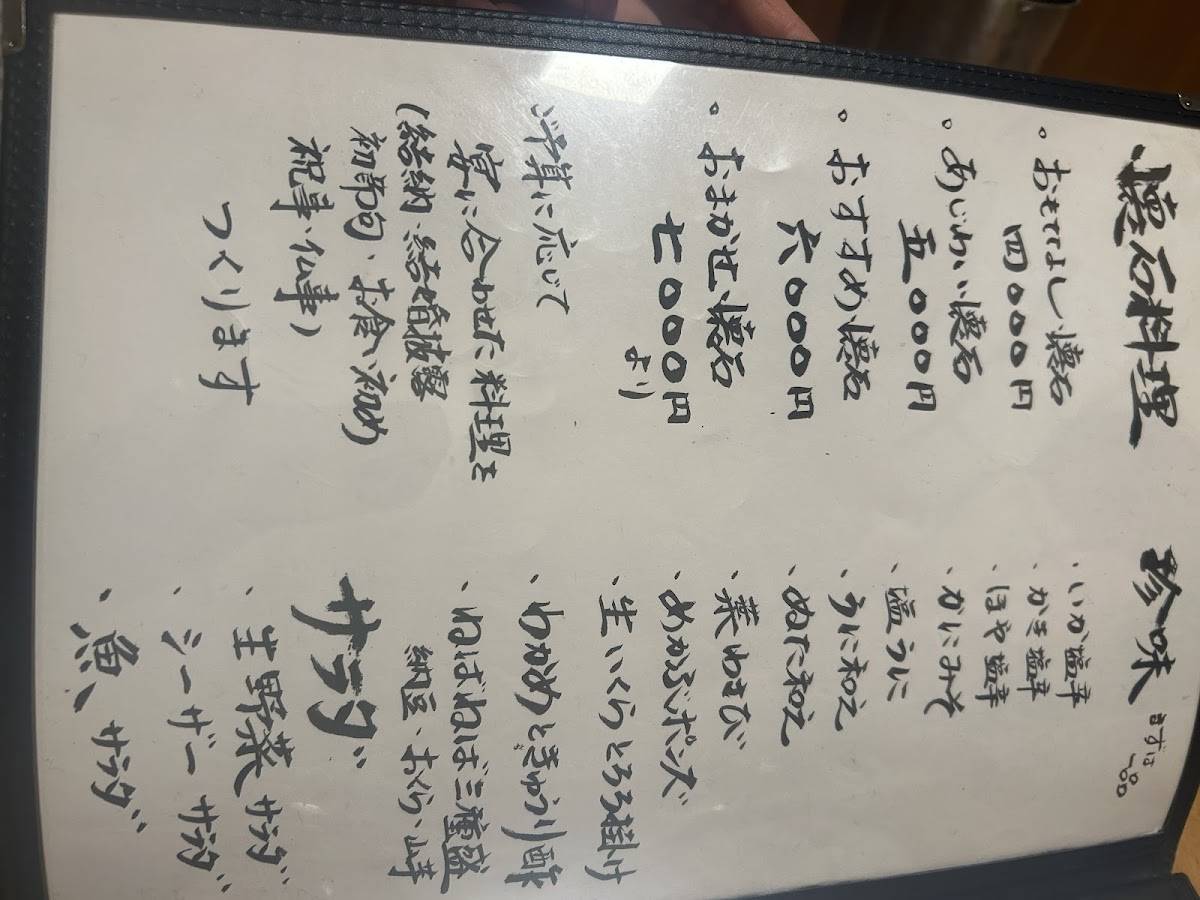 懐石料理
。おもてよし懐石
四〇〇〇円
。あじわい懐石
五〇〇〇円
。おすすめ懐石
六〇〇〇円
。おまかせ懐石
七〇〇〇円より
ご予算に応じて
宴に合わせた料理を
(結納、結婚披露
初節句、お食い初め
祝事・仏事)
つくります
珍味 まずは一品
、いか塩辛
、かき塩辛
、ほや塩辛
、かにみそ
、塩うに
、うに和え
、ぬた和え
、葉わさび
、めかぶポンズ
、生いくらとろろ掛け
、わかめときゅうり酢
、ねばねば三種盛
納豆、おくら、山芋
サラダ
、生野菜サラダ
、シーザーサラダ
、魚サラダ